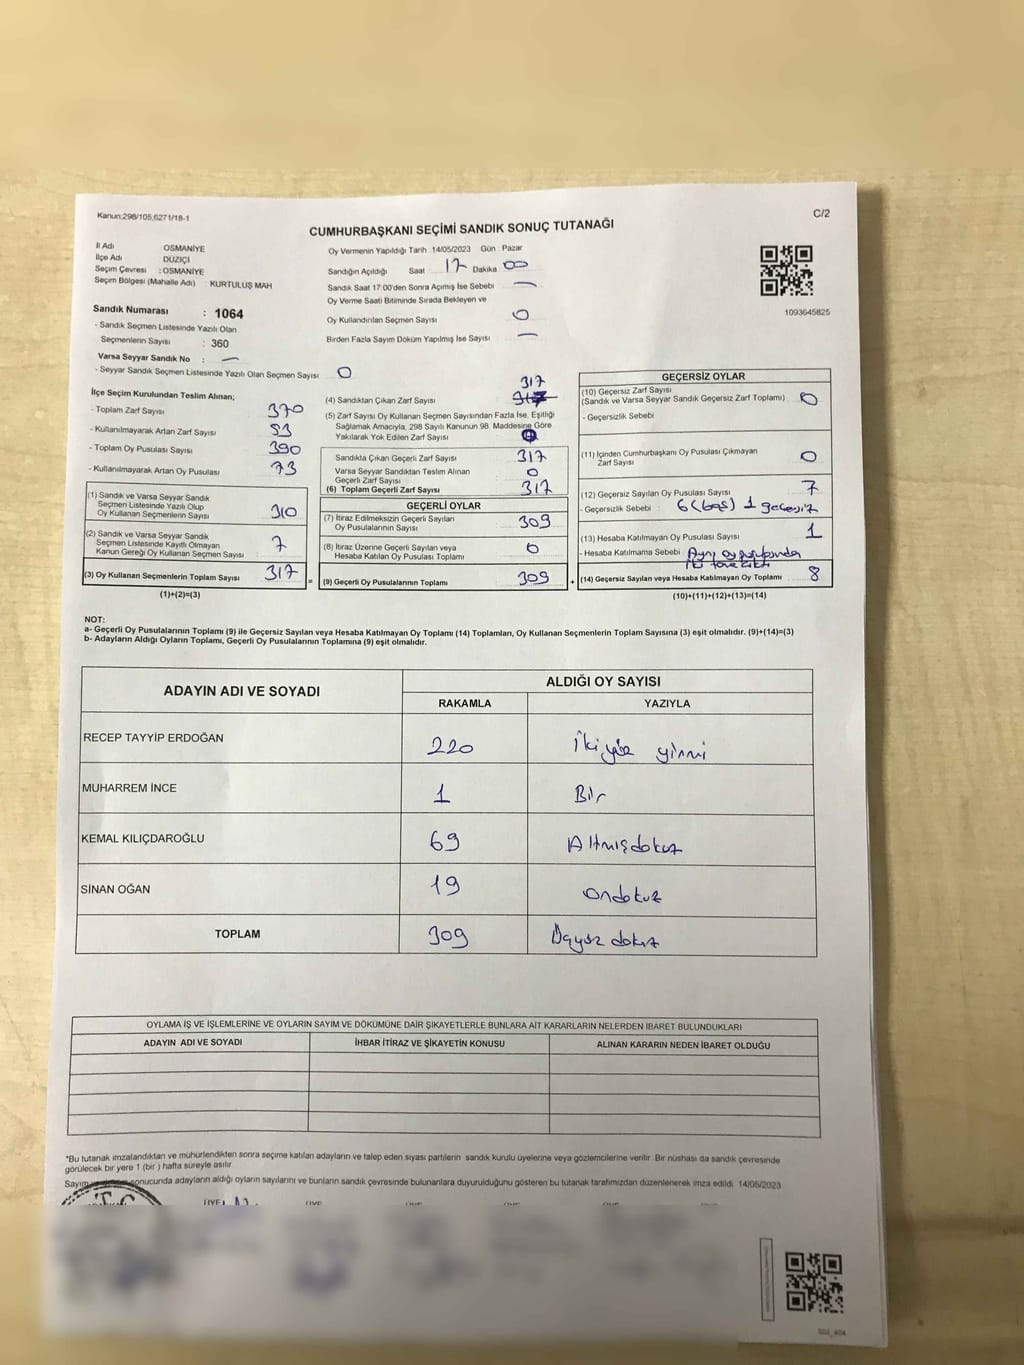 Kanun:298/105,6271/18-1
C/2
CUMHURBAŞKANI SEÇİMİ SANDIK SONUÇ TUTANAĞI
İl Adı OSMANİYE
İlçe Adı DÜZİÇİ
Seçim Çevresi : OSMANİYE
Seçim Bölgesi (Mahalle Adı) : KURTULUŞ MAH
Sandık Numarası : 1064
- Sandık Seçmen Listesinde Yazılı Olan
Seçmenlerin Sayısı : 360
Varsa Seyyar Sandık No : —
- Seyyar Sandık Seçmen Listesinde Yazılı Olan Seçmen Sayısı 0
Oy Vermenin Yapıldığı Tarih :14/05/2023 Gün : Pazar
Sandığın Açıldığı Saat : 17 Dakika : 00
Sandık Saat 17:00'den Sonra Açımış İse Sebebi —
Oy Verme Saati Bitiminde Sırada Bekleyen ve
Oy Kullandırılan Seçmen Sayısı 0
Birden Fazla Sayım Döküm Yapılmış İse Sayısı —
1093645825
İlçe Seçim Kurulundan Teslim Alınan;
- Toplam Zarf Sayısı 370
- Kullanılmayarak Artan Zarf Sayısı 53
- Toplam Oy Pusulası Sayısı 390
- Kullanılmayarak Artan Oy Pusulası 73
(1) Sandık ve Varsa Seyyar Sandık
Seçmen Listesinde Yazılı Olup
Oy Kullanan Seçmenlerin Sayısı 310
(2) Sandık ve Varsa Seyyar Sandık
Seçmen Listesinde Kayıtlı Olmayan
Kanun Gereği Oy Kullanan Seçmen Sayısı 7
(3) Oy Kullanan Seçmenlerin Toplam Sayısı 317
(1)+(2)=(3)
317
(4) Sandıktan Çıkan Zarf Sayısı
(5) Zarf Sayısı Oy Kullanan Seçmen Sayısından Fazla İse, Eşitliği
Sağlamak Amacıyla, 298 Sayılı Kanunun 98. Maddesine Göre
Yakılarak Yok Edilen Zarf Sayısı
Sandıkta Çıkan Geçerli Zarf Sayısı 317
Varsa Seyyar Sandıktan Teslim Alınan
Geçerli Zarf Sayısı 0
(6) Toplam Geçerli Zarf Sayısı 317
GEÇERLİ OYLAR
(7) İtiraz Edilmeksizin Geçerli Sayılan
Oy Pusulalarının Sayısı 309
(8) İtiraz Üzerine Geçerli Sayılan veya
Hesaba Katılan Oy Pusulası Toplamı 0
= (9) Geçerli Oy Pusulalarının Toplamı 309
GEÇERSİZ OYLAR
(10) Geçersiz Zarf Sayısı
(Sandık ve Varsa Seyyar Sandık Geçersiz Zarf Toplamı) 0
- Geçersizlik Sebebi :
(11) İçinden Cumhurbaşkanı Oy Pusulası Çıkmayan
Zarf Sayısı 0
(12) Geçersiz Sayılan Oy Pusulası Sayısı 7
- Geçersizlik Sebebi : 6 (boş) 1 geçersiz
(13) Hesaba Katılmayan Oy Pusulası Sayısı 1
- Hesaba Katılmama Sebebi : Aynı oy pusulasında
iki tane çıktı
+ (14) Geçersiz Sayılan veya Hesaba Katılmayan Oy Toplamı 8
(10)+(11)+(12)+(13)=(14)
NOT:
a- Geçerli Oy Pusulalarının Toplamı (9) ile Geçersiz Sayılan veya Hesaba Katılmayan Oy Toplamı (14) Toplamları, Oy Kullanan Seçmenlerin Toplam Sayısına (3) eşit olmalıdır. (9)+(14)=(3)
b- Adayların Aldığı Oyların Toplamı, Geçerli Oy Pusulalarının Toplamına (9) eşit olmalıdır.
ADAYIN ADI VE SOYADI ALDIĞI OY SAYISI
RAKAMLA YAZIYLA
RECEP TAYYİP ERDOĞAN 220 İkiyüz yirmi
MUHARREM İNCE 1 Bir
KEMAL KILIÇDAROĞLU 69 Altmışdokuz
SİNAN OĞAN 19 ondokuz
TOPLAM 309 Üçyüz dokuz
OYLAMA İŞ VE İŞLEMLERİNE VE OYLARIN SAYIM VE DÖKÜMÜNE DAİR ŞİKAYETLERLE BUNLARA AİT KARARLARIN NELERDEN İBARET BULUNDUKLARI
ADAYIN ADI VE SOYADI İHBAR İTİRAZ VE ŞİKAYETİN KONUSU ALINAN KARARIN NEDEN İBARET OLDUĞU
*Bu tutanak imzalandıktan ve mühürlendikten sonra seçime katılan adayların ve talep eden siyasi partilerin sandık kurulu üyelerine veya gözlemcilerine verilir. Bir nüshası da sandık çevresinde
görülecek bir yere 1 (bir) hafta süreyle asılır.
Sayım sonucunda adayların aldığı oyların sayılarını ve bunların sandık çevresinde bulunanlara duyurulduğunu gösteren bu tutanak tarafımızdan düzenlenerek imza edildi. 14/05/2023
T.C.
ÜYE ÜYE ÜYE ÜYE ÜYE ÜYE